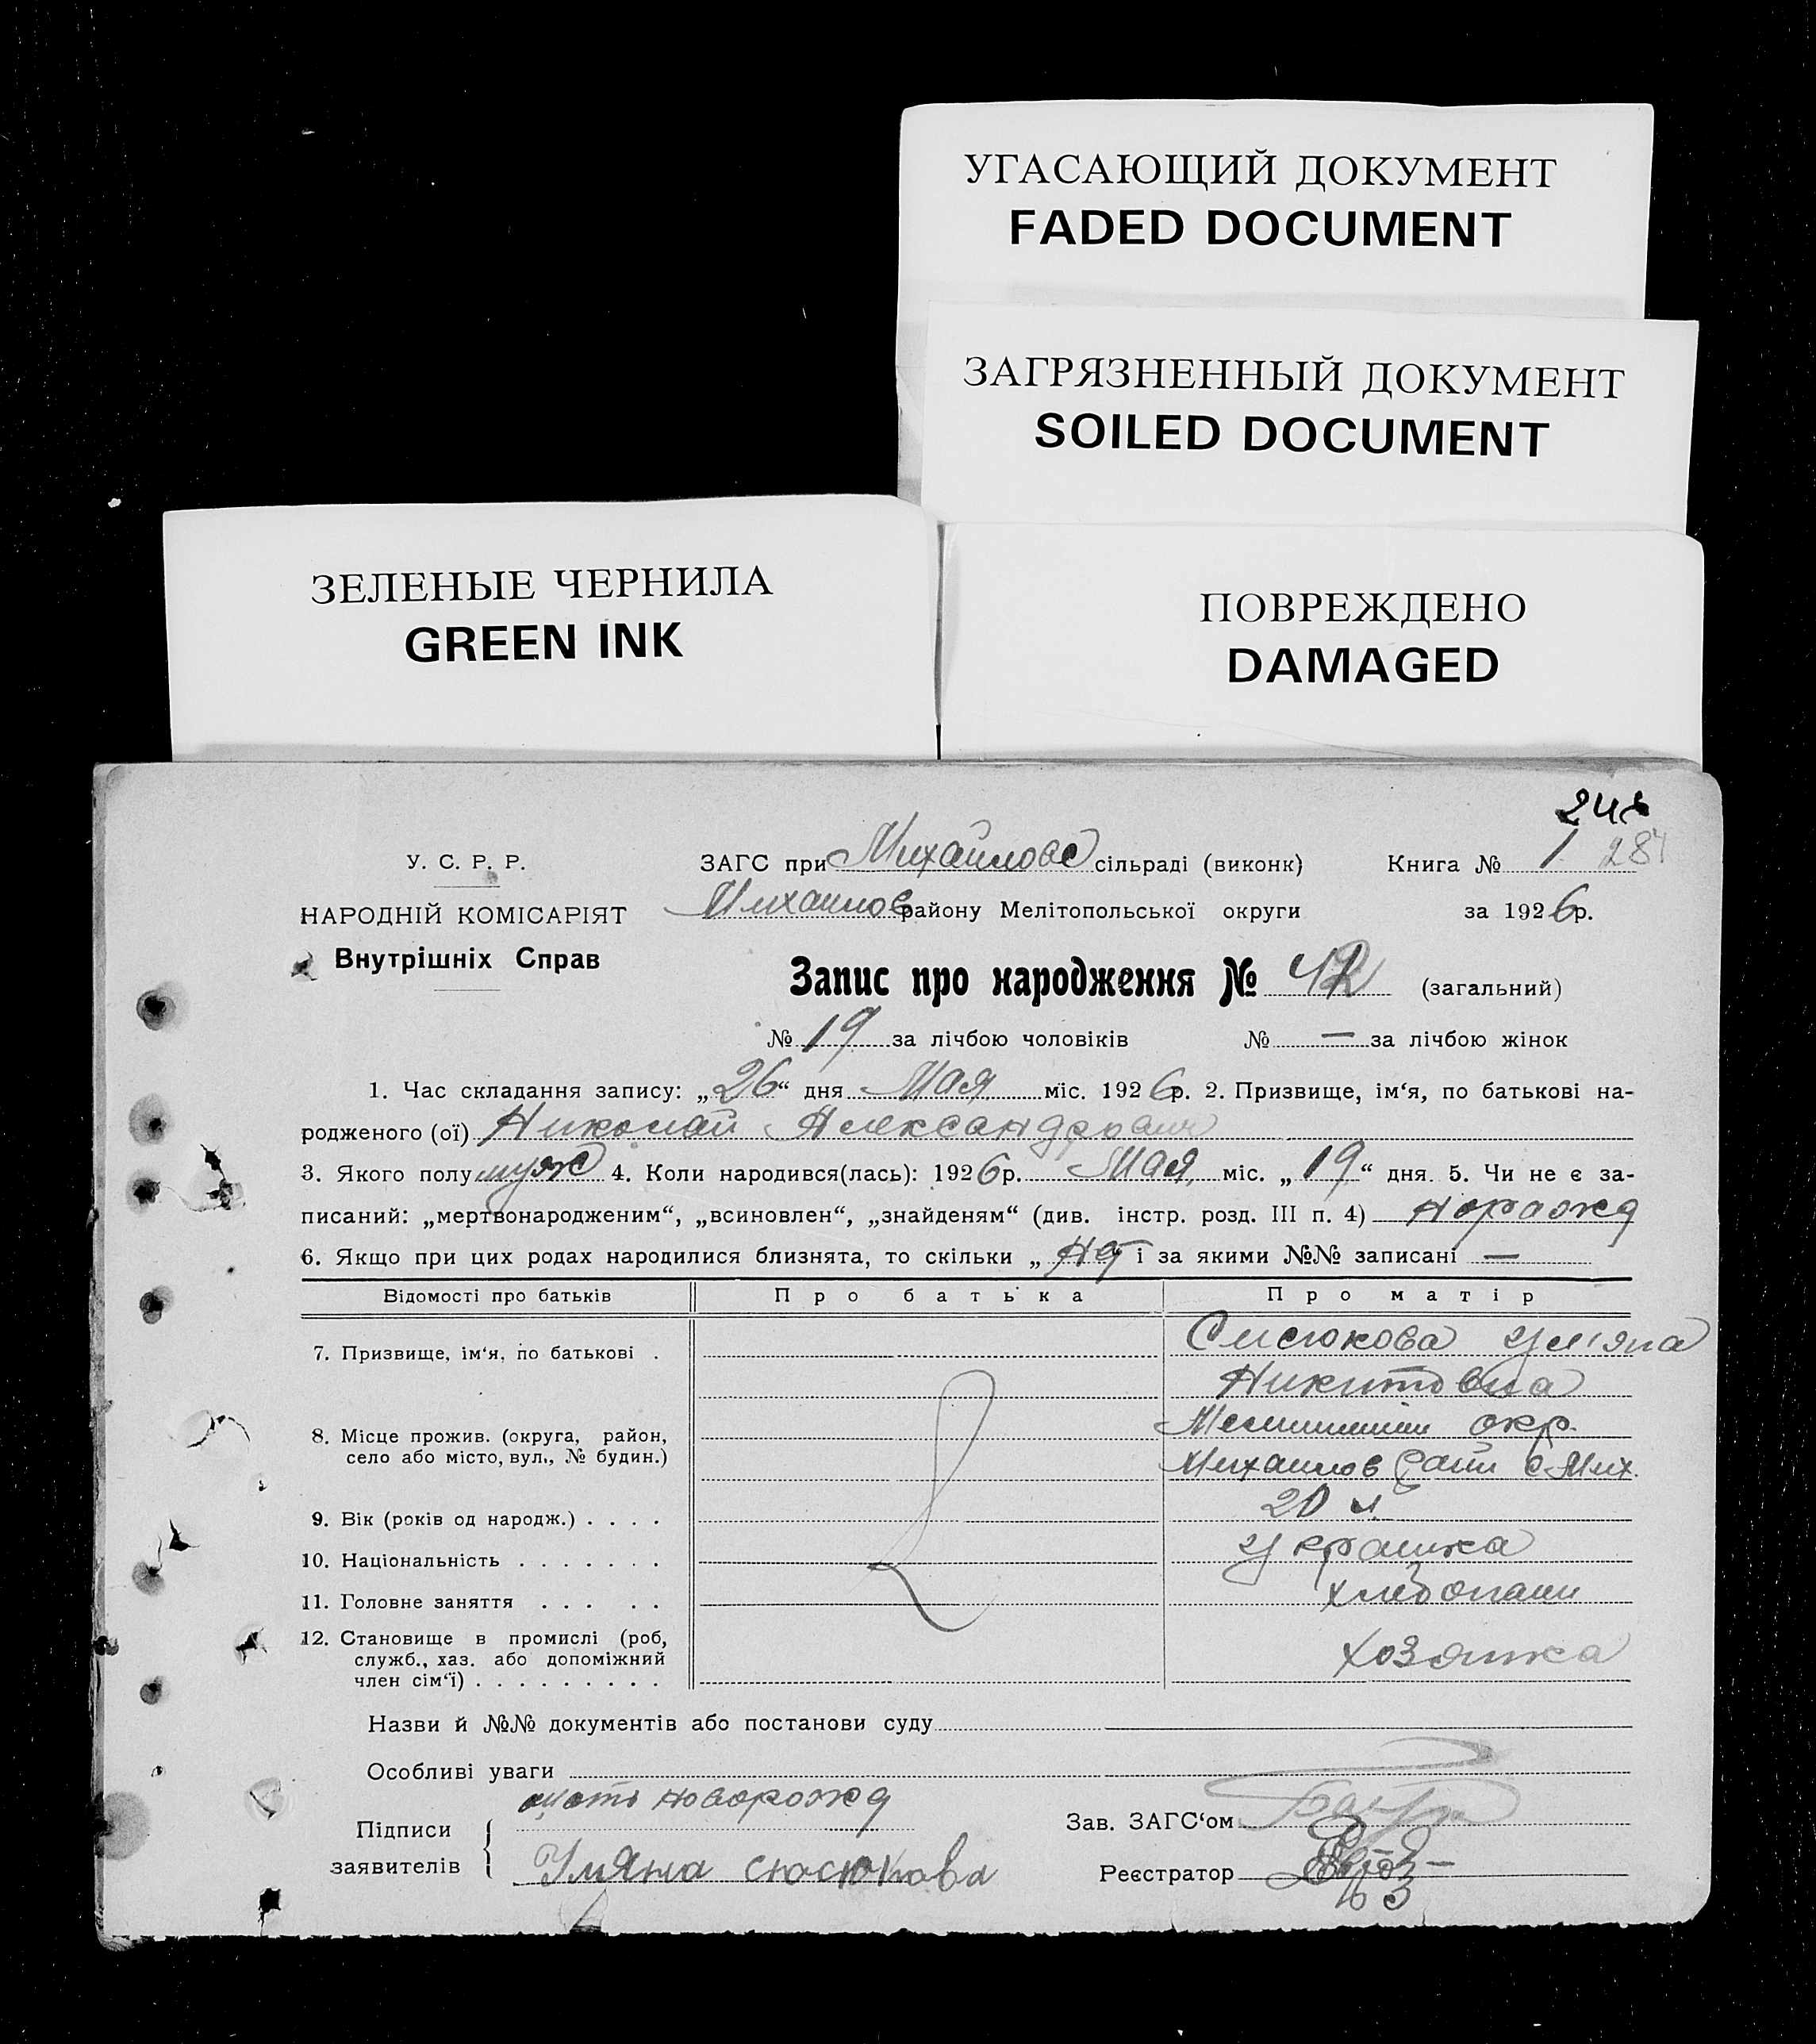 УГАСАЮЩИЙ ДОКУМЕНТ
FADED DOCUMENT
ЗАГРЯЗНЕННЫЙ ДОКУМЕНТ
SOILED DOCUMENT
ЗЕЛЕНЫЕ ЧЕРНИЛА
GREEN INK
ПОВРЕЖДЕНО
DAMAGED
У. С. Р. Р.
НАРОДНІЙ КОМІСАРІЯТ
Внутрішніх Справ
ЗАГС при Михайловс сільраді (виконк) Книга № 1
Михаилов району Мелітопольської округи за 1926р.
Запис про народження № 42 (загальний)
№ 19 за лічбою чоловіків № — за лічбою жінок
1. Час складання запису: „26“ дня Мая міс. 1926р. 2. Призвище, ім‘я, по батькові на-
родженого (ої) Николай Александрович
3. Якого полу муж 4. Коли народився(лась): 1926р. Мая міс. „19“ дня. 5. Чи не є за-
писаний: „мертвонародженим“, „всиновлен“, „знайденям“ (див. інстр. розд. III п. 4)
6. Якщо при цих родах народилися близнята, то скільки „ і за якими №№ записані —
Відомості про батьків Про батька Про матір
7. Призвище, ім‘я, по батькові . Сюсюкова Уляна
Никитовна
8. Місце прожив. (округа, район, село або місто, вул., № будин.) окр.
Михаилов райи с Мих.
9. Вік (років од народж.) . . . . 20 л.
10. Національність . . . . . . . Украинка
11. Головне заняття . . . . .
12. Становище в промислі (роб, служб., хаз. або допоміжний член сім‘ї) . . . . . . . . . хозяика
Назви й №№ документів або постанови суду
Особливі уваги
мать новорожд
Підписи заявителів { Уляна сюсюкова
Зав. ЗАГС‘ом
Реєстратор